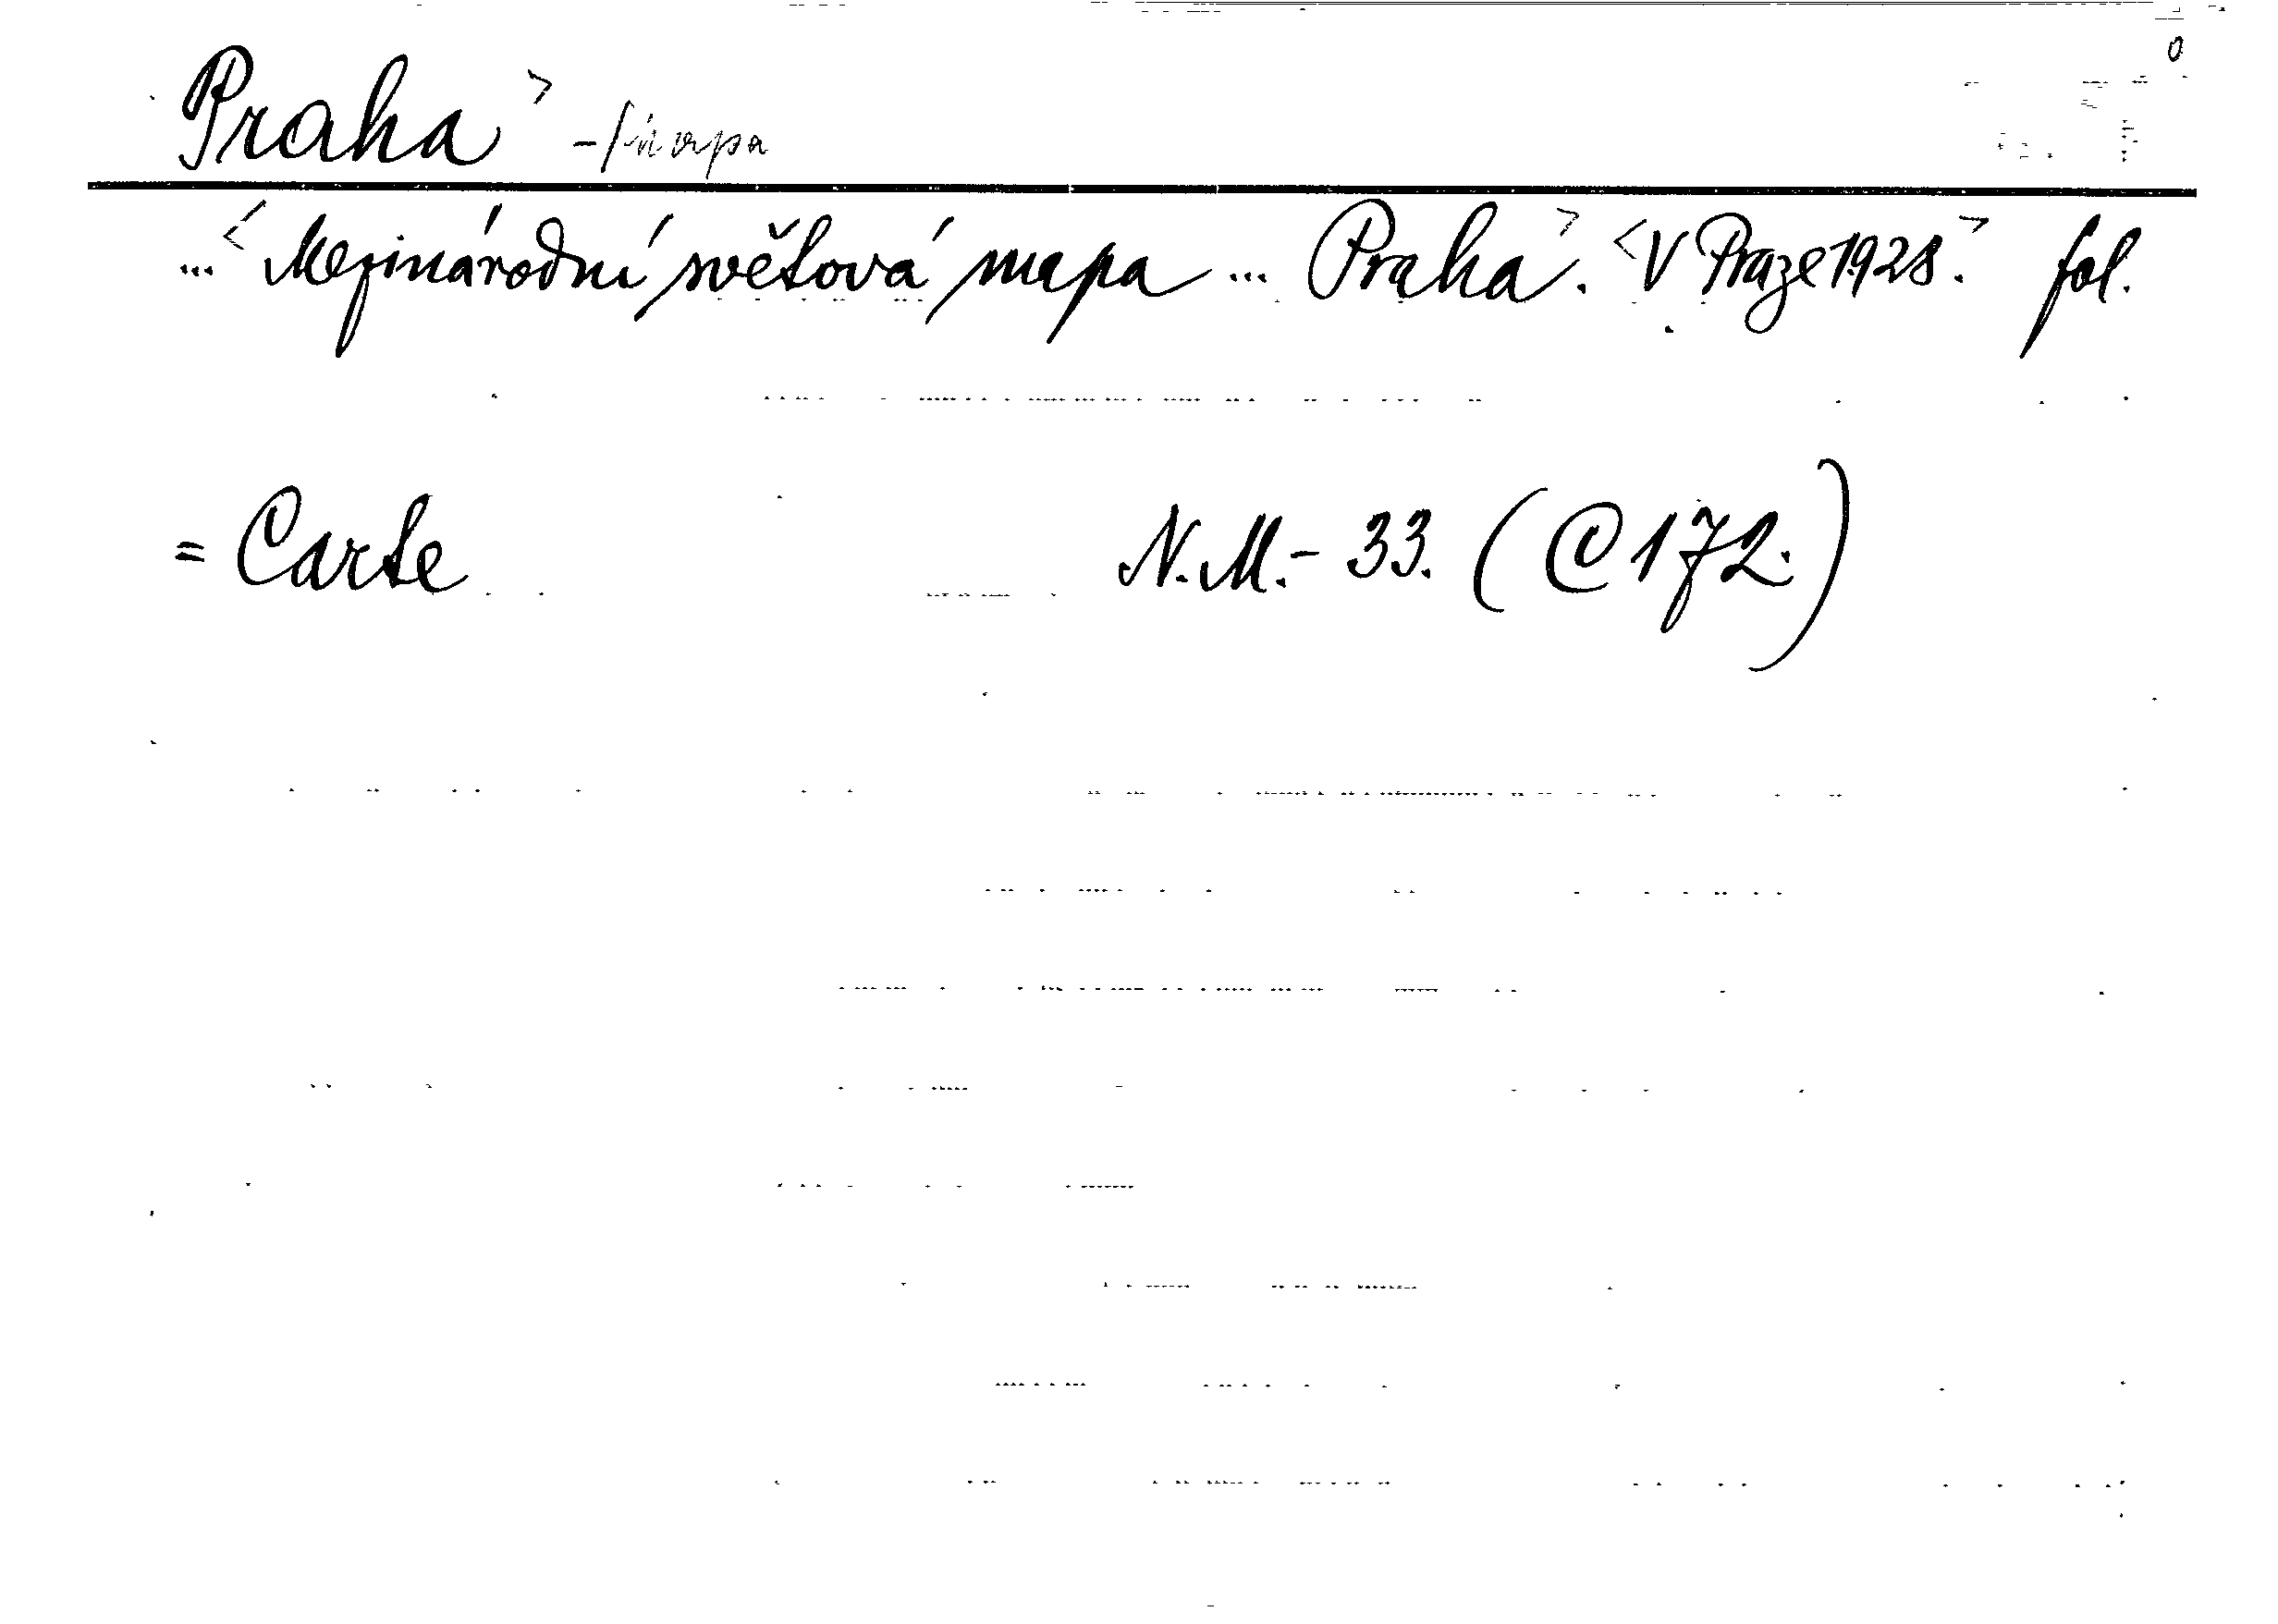 Praha > - / mapa
... < Mezinárodní světová mapa ... Praha >. < V Praze 1928. > fol.
= Carte N.M.- 33. (C 172.)